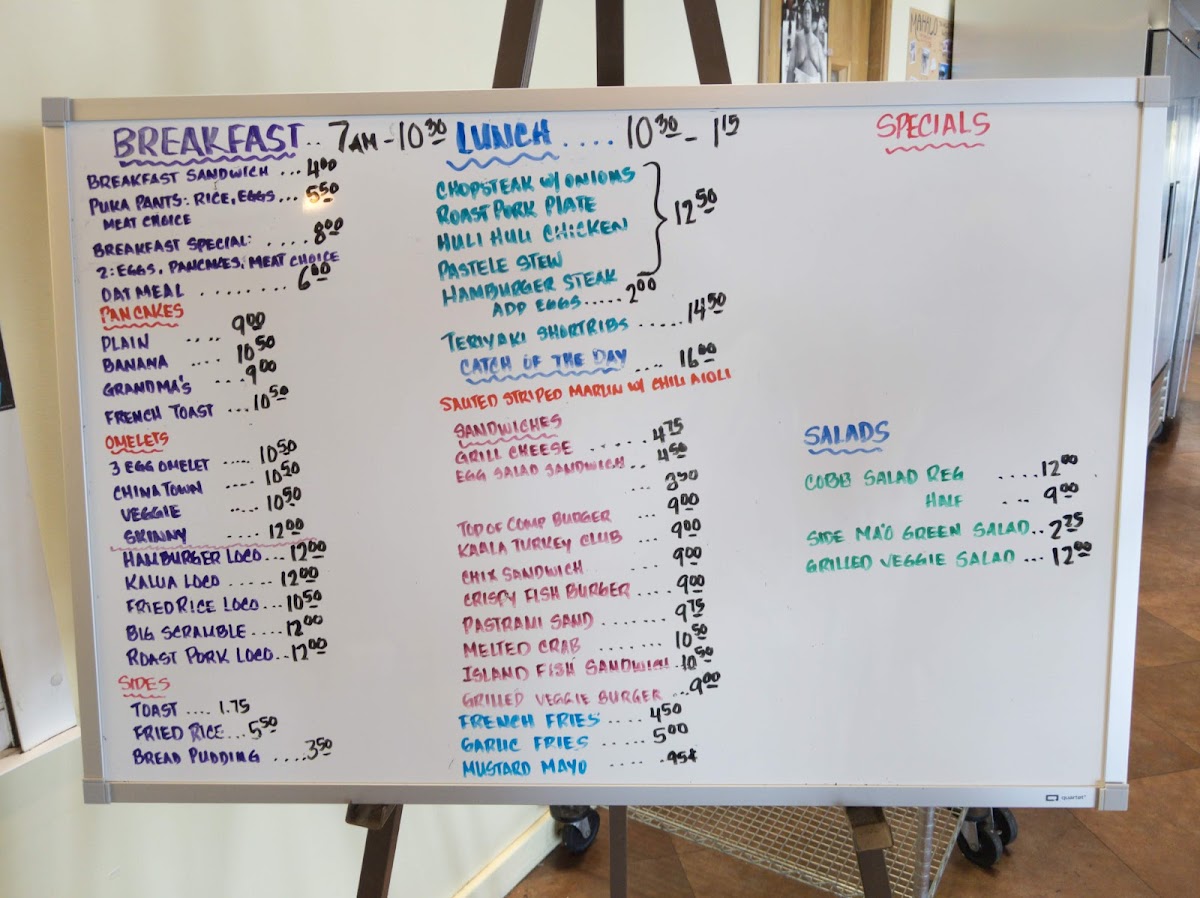 BREAKFAST.. 7AM - 10 30
BREAKFAST SANDWICH ... 4 00
PUKA PANTS: RICE, EGGS... 5 50
MEAT CHOICE
BREAKFAST SPECIAL: .... 8 00
2: EGGS, PANCAKES, MEAT CHOICE
OATMEAL ........ 6 00
PANCAKES
PLAIN .... 9 00
BANANA .... 10 50
GRANDMA'S ... 9 00
FRENCH TOAST ... 10 50
OMELETS
3 EGG OMELET .... 10 50
CHINATOWN .... 10 50
VEGGIE .... 10 50
SKINNY .... 12 00
HAMBURGER LOCO... 12 00
KALUA LOCO ...... 12 00
FRIED RICE LOCO... 10 50
BIG SCRAMBLE .... 12 00
ROAST PORK LOCO.. 12 00
SIDES
TOAST .... 1.75
FRIED RICE... 5 50
BREAD PUDDING .... 3 50
LUNCH .... 10 30 - 1 15
CHOPSTEAK W/ ONIONS
ROAST PORK PLATE
HULI HULI CHICKEN
12 50
PASTELE STEW
HAMBURGER STEAK
ADD EGGS..... 2 00
TERIYAKI SHORTRIBS ..... 14 50
CATCH OF THE DAY .... 16 00
SAUTED STRIPED MARLIN W/ CHILI AIOLI
SANDWICHES
GRILL CHEESE ...... 4 75
EGG SALAD SANDWICH .. 4 50
... 8 50
TOP OF COMP BURGER ... 9 00
KAALA TURKEY CLUB ... 9 00
CHIX SANDWICH .... 9 00
CRISPY FISH BURGER .... 9 00
PASTRAMI SAND .... 9 75
MELTED CRAB ....... 10 50
ISLAND FISH SANDWICH . 10 50
GRILLED VEGGIE BURGER ... 9 00
FRENCH FRIES .... 4 50
GARLIC FRIES ..... 5 00
MUSTARD MAYO .... .95¢
SPECIALS
SALADS
COBB SALAD REG ....12 00
HALF ... 9 00
SIDE MA'O GREEN SALAD.. 2 25
GRILLED VEGGIE SALAD ... 12 00
MAHALO
QUARTET